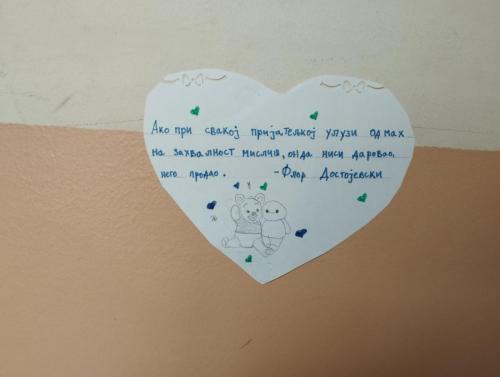 Ако при свакој пријатељкој услузи одмах
на захвалност мислиш, онда ниси даровао,
него продао. -Фјор Достојевски